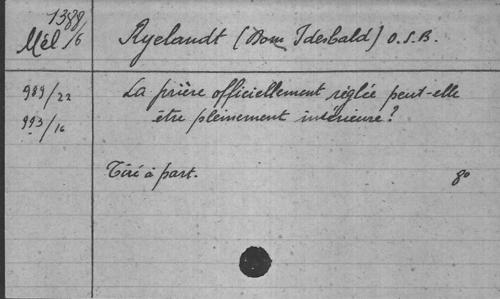 1388/
Mél /6
Ryelandt (Dom Idesbald) O.S.B.
989/22
993/16
La prière officiellement réglée peut-elle
être pleinement intérieure?
Tiré à part.
8º